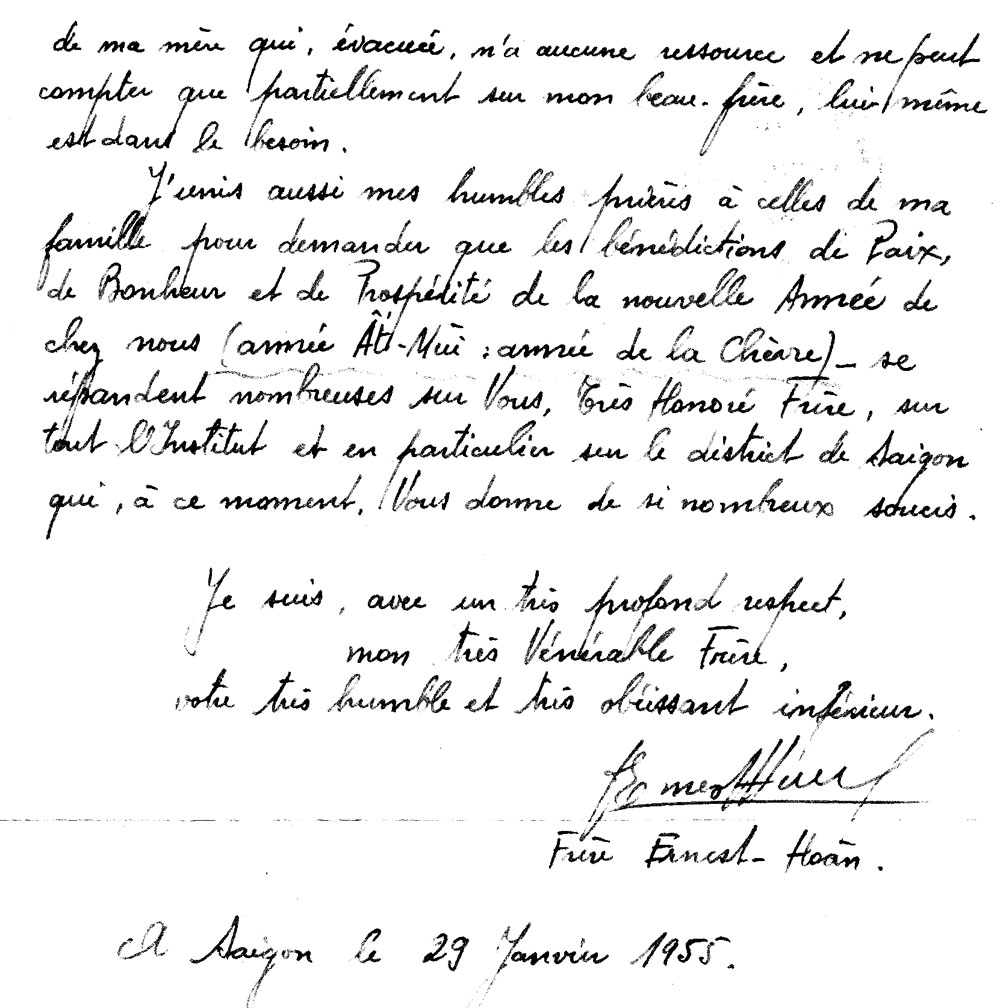 de ma mère qui, évacuée, n'a aucune ressource et ne peut
compter que partiellement sur mon beau-frère, lui-même
est dans le besoin.
J'unis aussi mes humbles prières à celles de ma
famille pour demander que les bénédictions de Paix,
de Bonheur et de Prospérité de la nouvelle Année de
chez nous (année Ất-Mùi : année de la Chèvre) – se
répandent nombreuses sur Vous, Très Honoré Frère, sur
tout l'Institut et en particulier sur le district de Saigon
qui, à ce moment, Vous donne de si nombreux soucis.
Je suis, avec un très profond respect,
mon très Vénérable Frère,
votre très humble et très obéissant inférieur.
Frère Ernest-Hoàn.
A Saigon le 29 Janvier 1955.